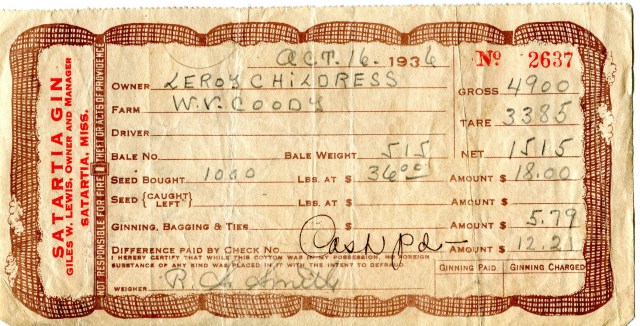 SATARTIA GIN
GILES W. LEWIS, OWNER AND MANAGER
SATARTIA, MISS.
NOT RESPONSIBLE FOR FIRE, THEFT OR ACTS OF PROVIDENCE
OCT. 16. 1936 Nº 2637
OWNER LEROY CHILDRESS GROSS 4900
FARM W.V. COODY TARE 3385
DRIVER
BALE NO. BALE WEIGHT 515 NET 1515
SEED BOUGHT 1000 LBS. AT $ 36.00 AMOUNT $ 18.00
SEED {CAUGHT LEFT} LBS. AT $ AMOUNT $
GINNING, BAGGING & TIES $ 5.79
DIFFERENCE PAID BY CHECK NO. Cash pd AMOUNT $ 12.21
I HEREBY CERTIFY THAT WHILE THIS COTTON WAS IN MY POSSESSION, NO FOREIGN
SUBSTANCE OF ANY KIND WAS PLACED IN IT WITH THE INTENT TO DEFRAUD.
GINNING PAID GINNING CHARGED
WEIGHER